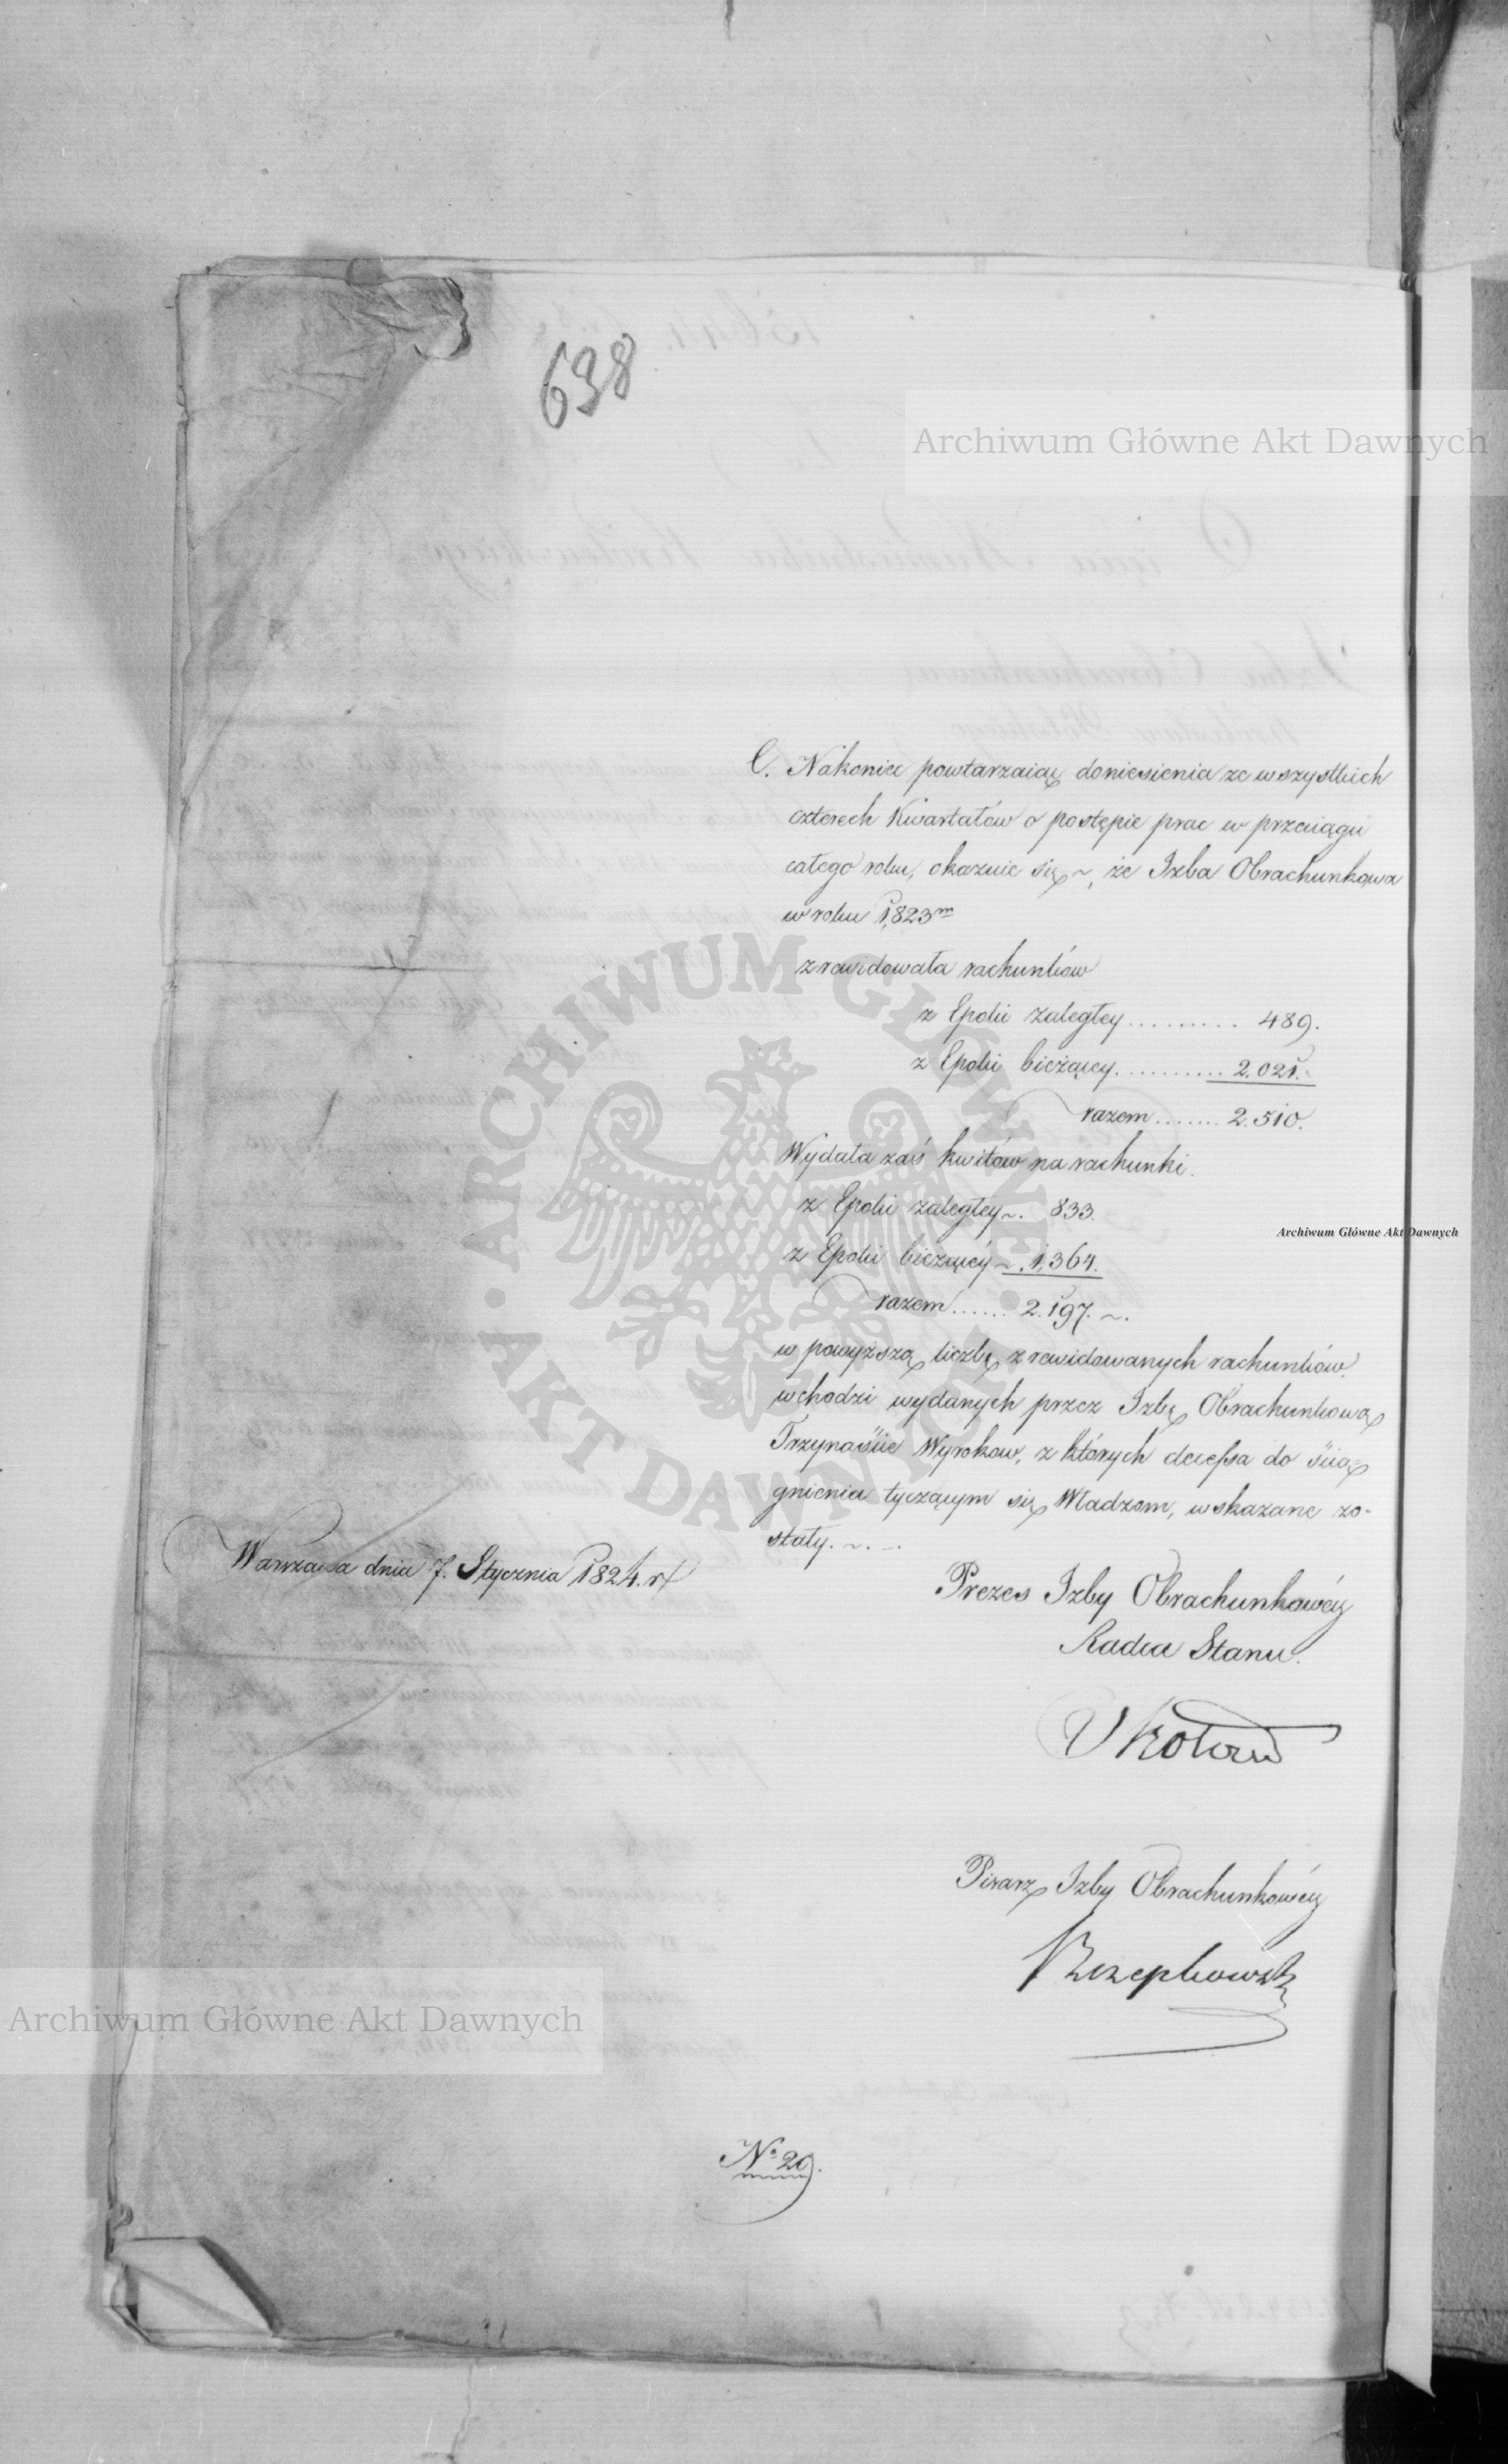 638
Archiwum Główne Akt Dawnych
C. Nakoniec powtarzaiąc doniesienia ze wszystkich
czterech Kwartałów o postępie prac w przeciągu
całego roku, okazuie się ~, że Izba Obrachunkowa
w roku 1,823m
zrewidowała rachunków
z Epoki zaległey .......... 489.
z Epoki bieżącey ........... 2.021.
razem ....... 2.510.
Wydała zaś kwitów na rachunki.
z Epoki zaległey ~. 833.
z Epoki bieżącéy ~. 1,364.
Archiwum Główne Akt Dawnych
razem ...... 2.197. ~.
w powyższą liczbę zrewidowanych rachunków.
wchodzi wydanych przez Izbę Obrachunkową
Trzynaście Wyroków, z których decessa do ścią-
gnienia tyczącym się Władzom, wskazane zo-
stały. ~. ~
Warszawa dnia 7. Stycznia 1824. r
Prezes Izby Obrachunkowéy
Radca Stanu.
Pisarz Izby Obrachunkowéy
Rzepkowski
Archiwum Główne Akt Dawnych
No 20.
ARCHIWUM GŁÓWNE AKT DAWNYCH